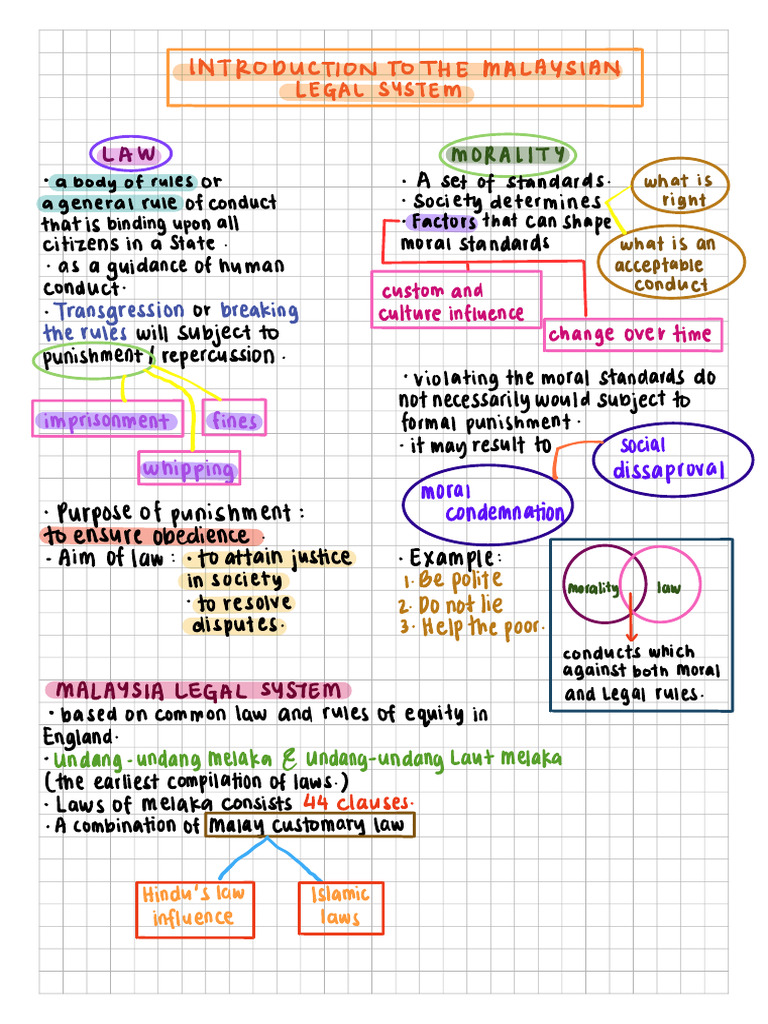 INTRODUCTION TO THE MALAYSIAN
LEGAL SYSTEM
LAW
· a body of rules or
a general rule of conduct
that is binding upon all
citizens in a State.
· as a guidance of human
conduct.
· Transgression or breaking
the rules will subject to
punishment / repercussion.
imprisonment
fines
whipping
· Purpose of punishment :
to ensure obedience.
· Aim of law : · to attain justice
in society
· to resolve
disputes.
MORALITY
· A set of standards.
· Society determines
what is
right
what is an
acceptable
conduct
· Factors that can shape
moral standards
custom and
culture influence
change over time
· violating the moral standards do
not necessarily would subject to
formal punishment.
· it may result to
social
dissaproval
moral
condemnation
· Example:
1. Be polite
2. Do not lie
3. Help the poor.
morality
law
conducts which
against both moral
and legal rules.
MALAYSIA LEGAL SYSTEM
· based on common law and rules of equity in
England.
· Undang-undang Melaka & Undang-undang Laut Melaka
(the earliest compilation of laws.)
· Laws of melaka consists 44 clauses.
· A combination of Malay customary law
Hindu's law
influence
Islamic
laws